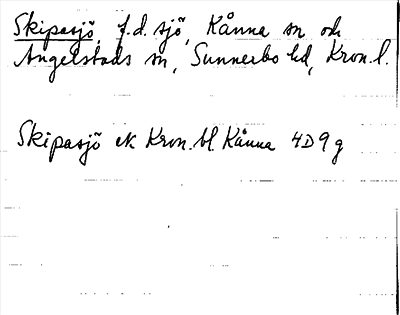 Skipasjö, f.d. sjö, Kånna sn och
Angelstads sn, Sunnerbo hd, Kron. l.
Skipasjö ek Kron. bl. Kånna 4D9g